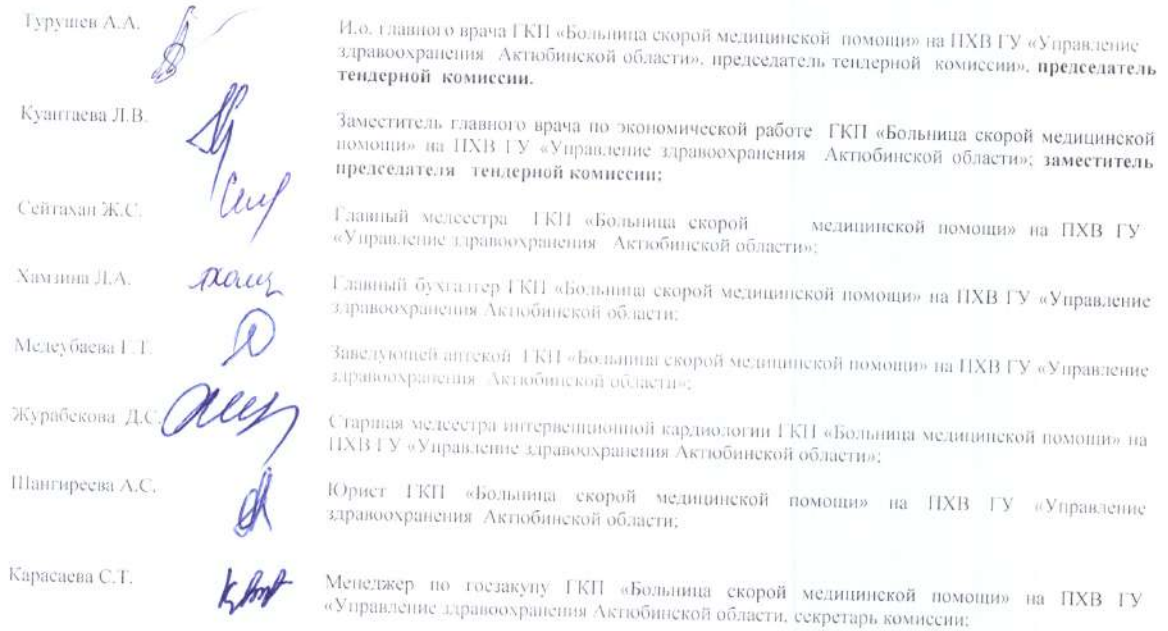 Турушев А.А.
И.о. главного врача ГКП «Больница скорой медицинской помощи» на ПХВ ГУ «Управление
здравоохранения Актюбинской области», председатель тендерной комиссии», председатель
тендерной комиссии.
Куантаева Л.В.
Заместитель главного врача по экономической работе ГКП «Больница скорой медицинской
помощи» на ПХВ ГУ «Управление здравоохранения Актюбинской области»; заместитель
председателя тендерной комиссии;
Сейтахан Ж.С.
Главный медсестра ГКП «Больница скорой медицинской помощи» на ПХВ ГУ
«Управление здравоохранения Актюбинской области»;
Хамзина Л.А.
Главный бухгалтер ГКП «Больница скорой медицинской помощи» на ПХВ ГУ «Управление
здравоохранения Актюбинской области;
Медеубаева Г.Т.
Заведующей аптекой ГКП «Больница скорой медицинской помощи» на ПХВ ГУ «Управление
здравоохранения Актюбинской области»;
Журабекова Д.С.
Старшая медсестра интервенционной кардиологии ГКП «Больница медицинской помощи» на
ПХВ ГУ «Управление здравоохранения Актюбинской области»;
Шангиреева А.С.
Юрист ГКП «Больница скорой медицинской помощи» на ПХВ ГУ «Управление
здравоохранения Актюбинской области;
Карасаева С.Т.
Менеджер по госзакупу ГКП «Больница скорой медицинской помощи» на ПХВ ГУ
«Управление здравоохранения Актюбинской области, секретарь комиссии;